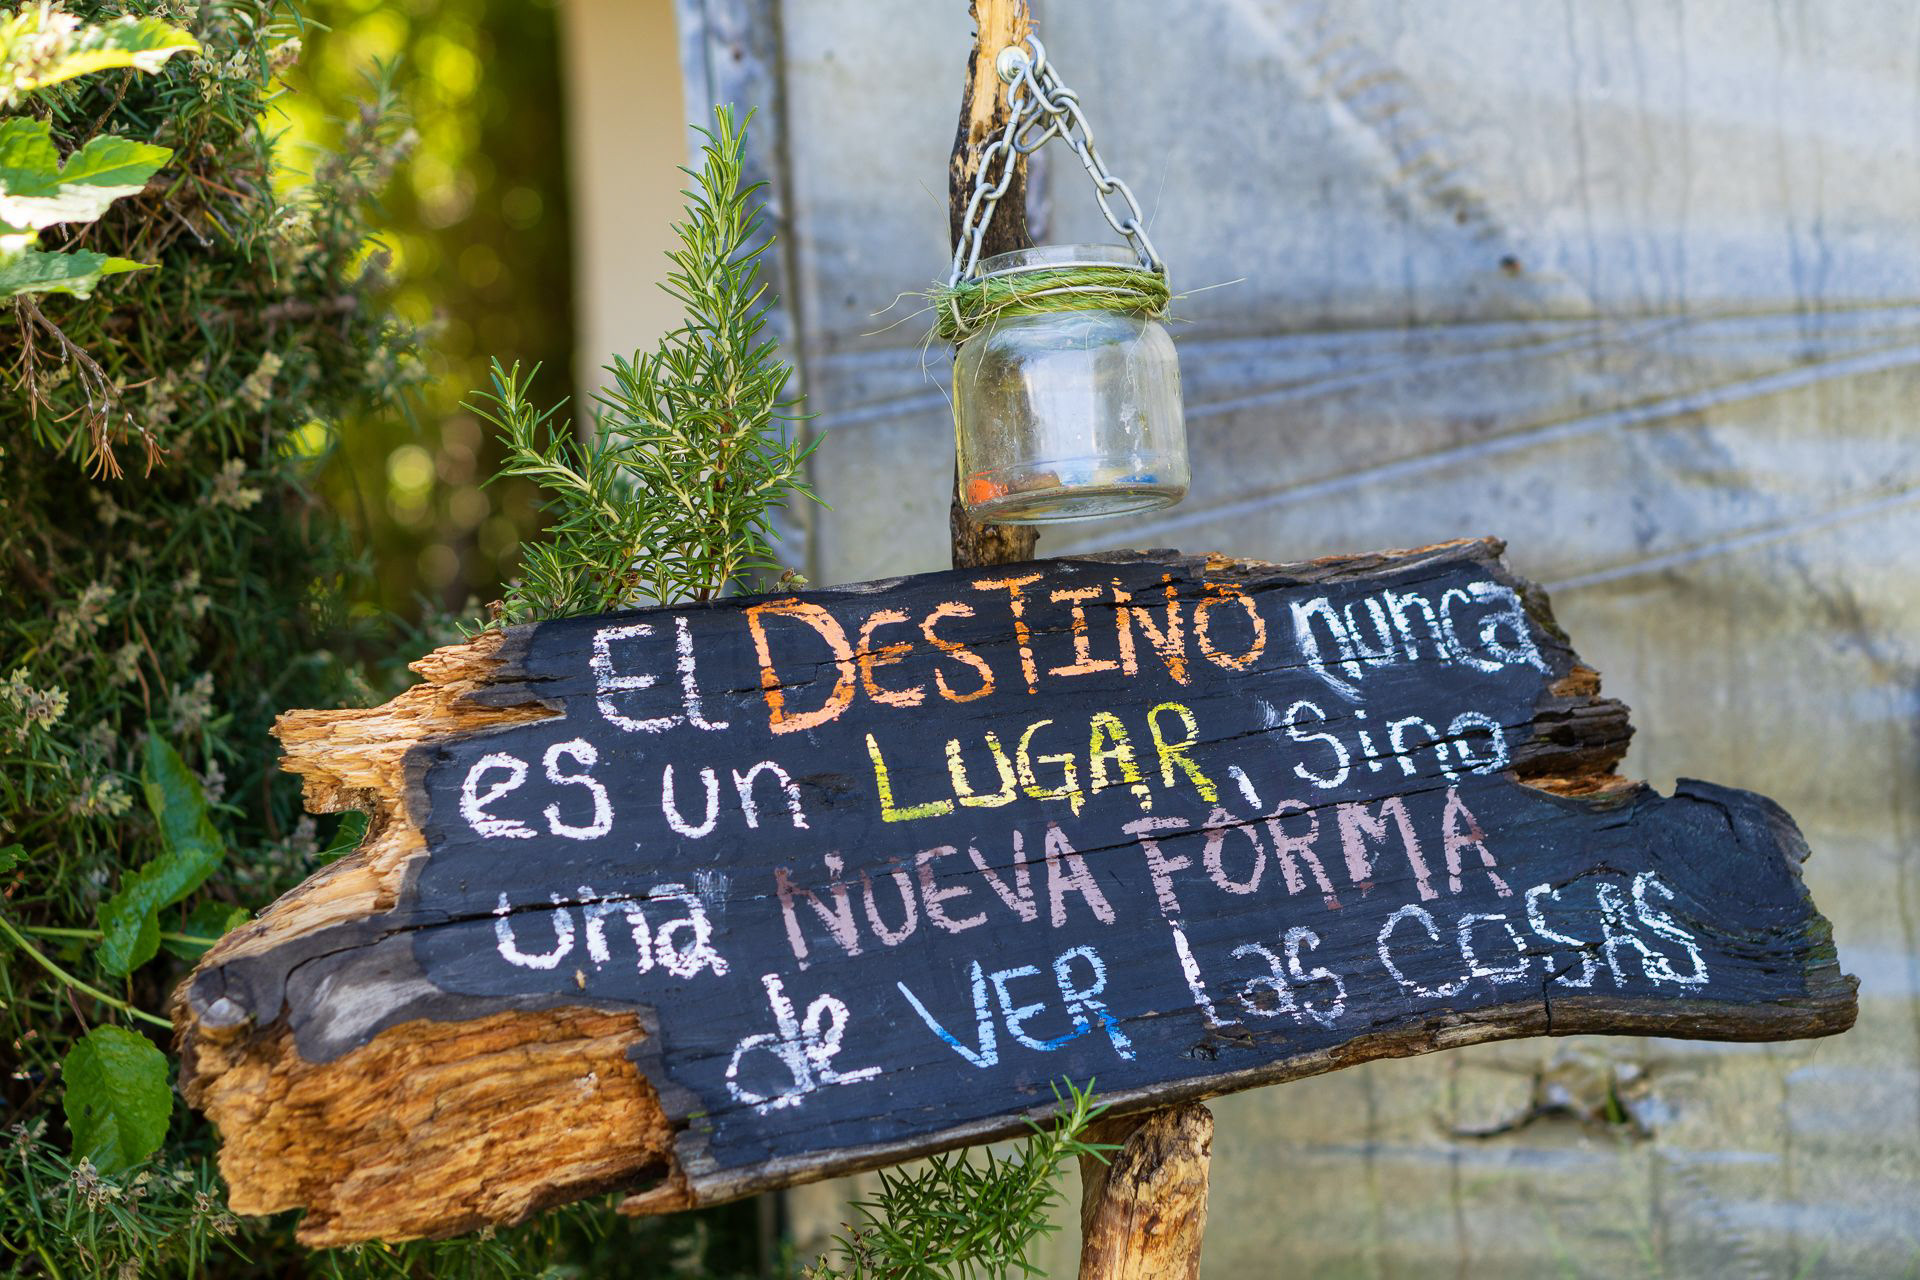 El DESTINO nunca
es un LUGAR, sino
una NUEVA FORMA
de VER las COSAS